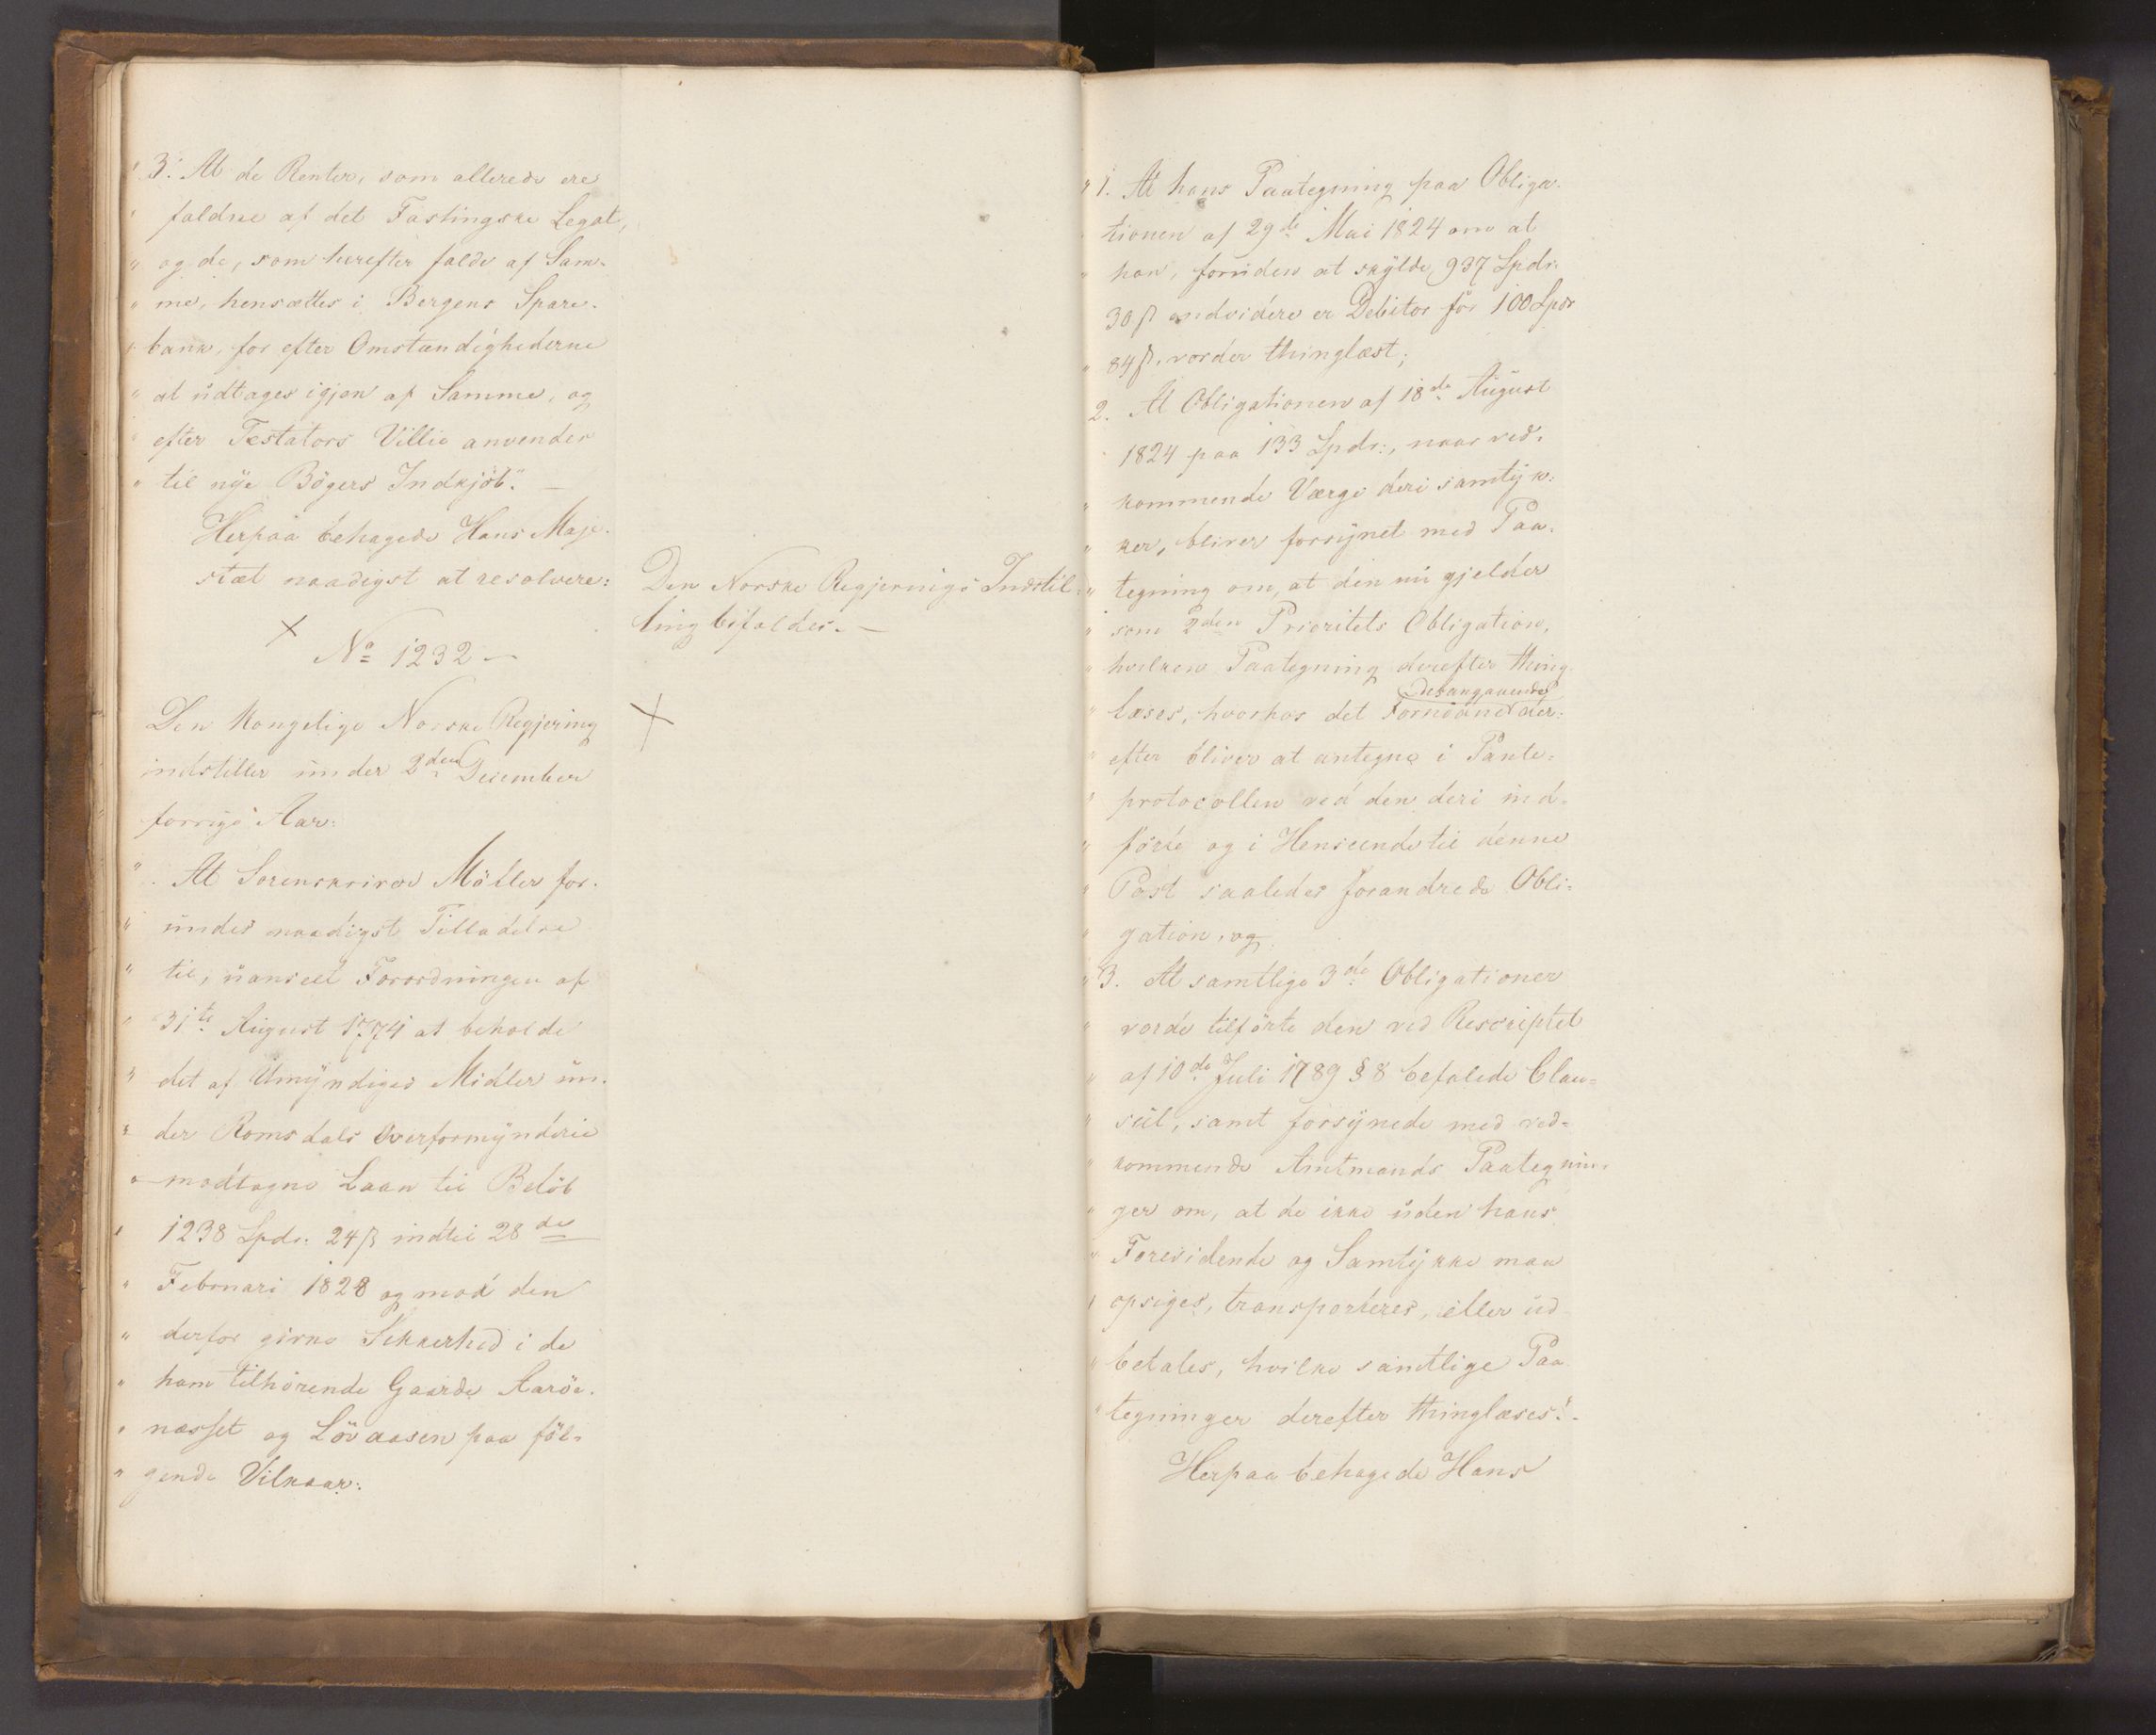 " 3. At de Renter, som allerede ere
" faldne af det Fastingske Legat,
" og de, som herefter falde af Sam-
" me, hensættes i Bergens Spare-
" bank, for efter Omstændighederne
" at udtages igjen af Samme, og
" efter Testators Villie anvendes
" til nye Bøgers Indkjøb". —
Herpaa behagede Hans Maje-
stæt naadigst at resolvere:
Den Norske Regjerings Indstil-
ling bifaldes. —
No 1232 —
Den Kongelige Norske Regjering
indstiller under 2den December
forrige Aar:
" At Sorenskriver Möller for-
" undes naadigst Tilladelse
" til, uanseet Forordningen af
" 31te August 1774 at beholde
" det af Umyndiges Midler un-
" der Romsdals Overformynderie
" modtagne Laan til Beløb
" 1238 Spdr. 24 ß indtil 28de
" Februari 1828 og mod den
" derfor givne Sikkerhed i de
" ham tilhørende Gaarde Aarøe-
" næsset og Lövaasen paa föl-
" gende Vilkaar:
" 1. At hans Paategning paa Obliga-
tionen af 29de Mai 1824 om at
" han, foruden at skylde 937 Spdr.
30 ß endvidere er Debitor for 100 Spdr
" 84 ß, vorder thinglæst;
2. At Obligationen af 18de August
1824 paa 133 Spdr:, naar ved-
" kommende Værge deri samtyk-
" ker, bliver forsynet med Paa-
" tegning om, at den nu gjelder
" som 2den Prioritets Obligation,
" hvilken Paategning derefter thing-
desangaaende
" læses, hvorhos det Fornødne der-
" efter bliver at antegne i Pante-
" protocollen ved den deri ind-
" førte og i Henseende til denne
" Post saaledes forandrede Obli-
" gation, og
" 3. At samtlige 3de Obligationer
" vorde tilførte den ved Rescriptet
" af 10de Juli 1789 § 8 befalede Clau-
" sul, samt forsynede med ved-
" kommende Amtmands Paategnin-
" ger om, at de ikke uden hans
" Forevidende og Samtykke maa
" opsiges, transporteres, eller ud-
" betales, hvilke samtlige Paa-
" tegninger derefter thinglæses". -
Herpaa behagede Hans